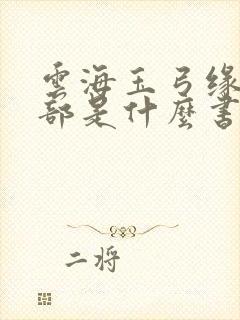 雲海玉弓缘
部是什麼書
二将